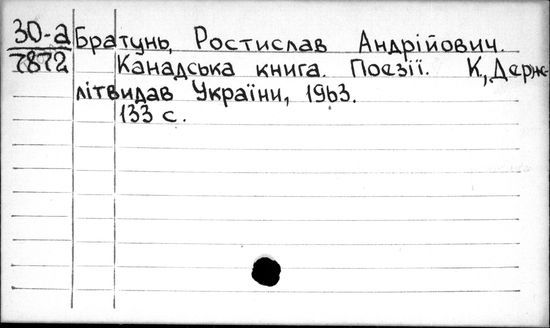 30-а Братунь, Ростислав Андрійович.
7872 Канадська книга. Поезії. К, Держ-
літвидав України, 1963.
133 с.